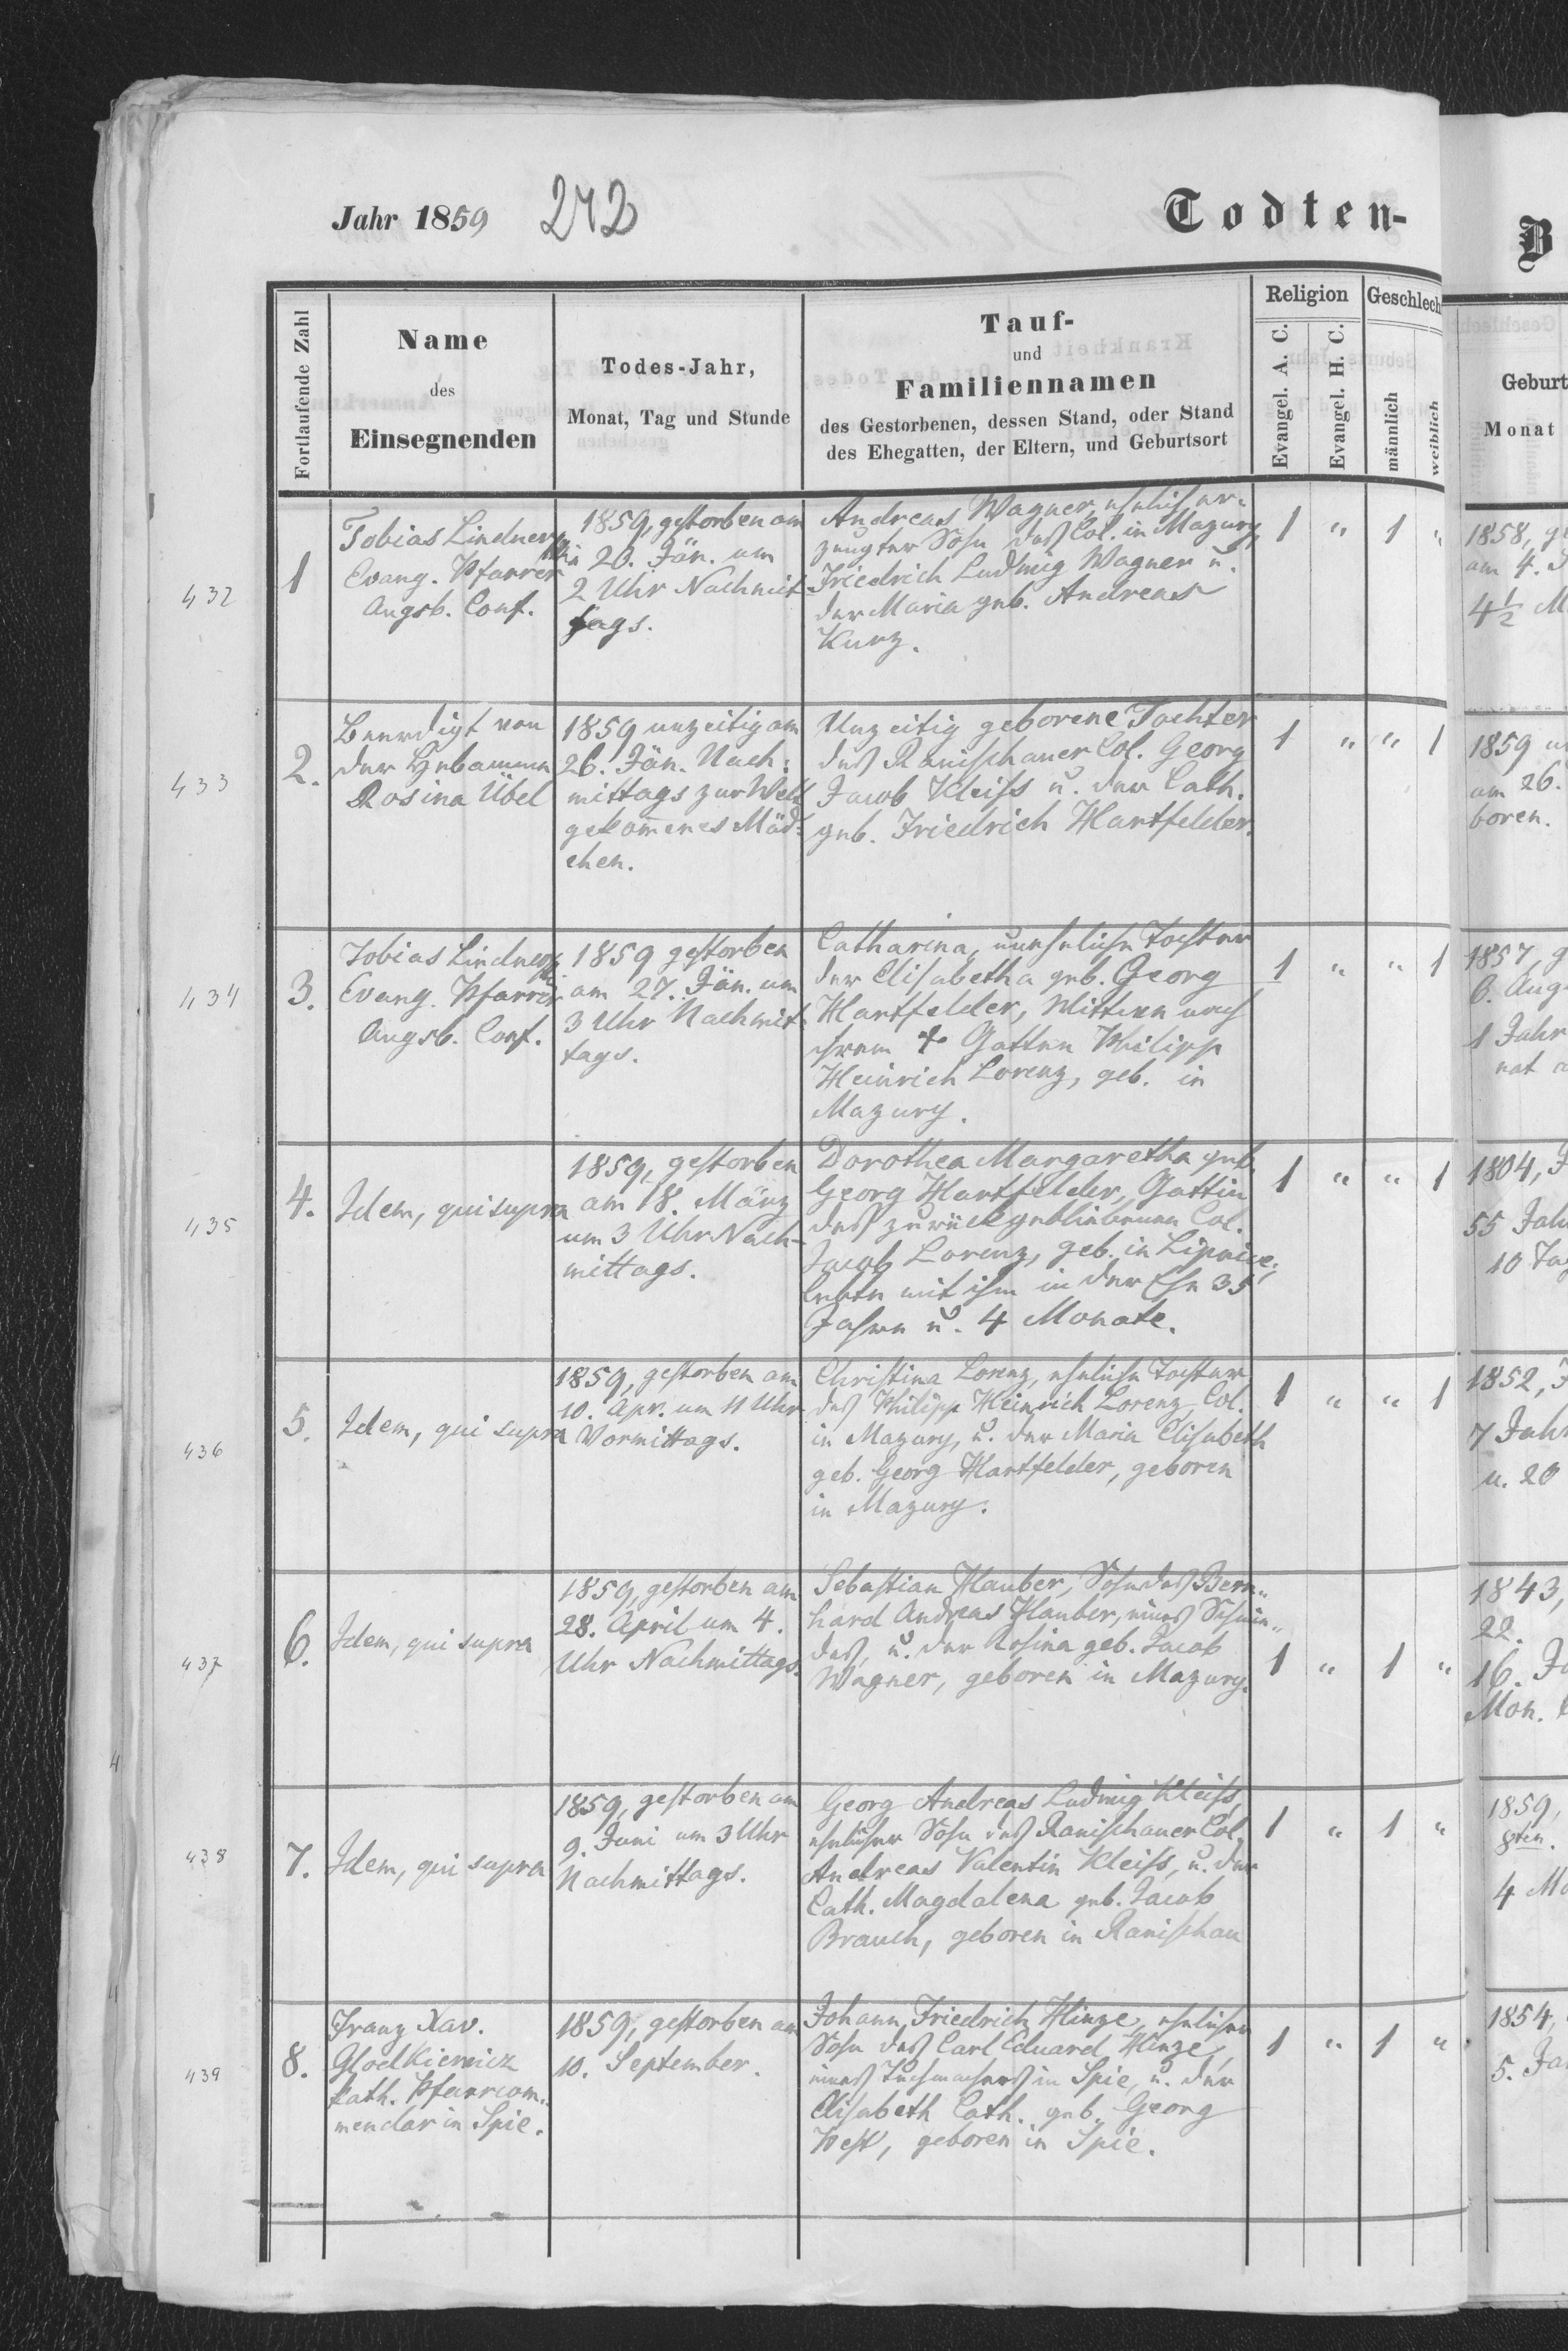 Jahr 1859 242 Todten-
B
Fortlaufende Zahl
Name
des
Einsegnenden
Todes-Jahr,
Monat, Tag und Stunde
Tauf-
und
Familiennamen
des Gestorbenen, dessen Stand, oder Stand
des Ehegatten, der Eltern, und Geburtsort
Religion
Evangel. A. C.
Evangel. H. C.
Geschlech
männlich
weiblich
Geburt
Monat
432
1
Tobias Lindner
Evang. Pfarrer
Augsb. Conf.
1859, gestorben am
20. Jän. um
2 Uhr Nachmit-
tags.
Andreas Wagner, ehelich er-
zeugter Sohn des Col. in Mazury,
Friedrich Ludwig Wagner u.
der Maria geb. Andreas
Kurz.
1 " 1 "
1858, ge
am 4. J
4½ M
433
2.
Beerdigt von
der Hebamme
Rosina Übel
1859 unzeitig am
26. Jän. Nach-
mittags zur Welt
gekom̅enes Mäd-
chen.
Unzeitig geborene Tochter
des Ranischauer Col. Georg
Jacob Kleiss u. der Cath.
geb. Friedrich Hartfelder.
1 " " 1
1859 u
am 26.
boren.
434
3.
Tobias Lindner
Evang. Pfarrer
Augsb. Conf.
1859 gestorben
am 27. Jän. um
3 Uhr Nachmit-
tags.
Catharina, uneheliche Tochter
der Elisabetha geb. Georg
Hartfelder, Wittwe nach
ihrem + Gatten Philipp
Heinrich Lorenz, geb. in
Mazury.
1 " " 1
1857, g
6. Aug
1 Jahr
nat
435
4.
Idem, qui supra
1859, gestorben
am 18. März
um 3 Uhr Nach-
mittags.
Dorothea Margaretha geb.
Georg Hartfelder, Gattin
des zurückgebliebenen Col.
Jacob Lorenz, geb. in Lipnice,
lebte mit ihm in der Ehe 35
Jahre u. 4 Monate.
1 " " 1
1804, J
55 Jah
10 Tag
436
5.
Idem, qui supra
1859, gestorben am
10. Apr. um 11 Uhr
Vormittags.
Christina Lorenz, eheliche Tochter
des Philipp Heinrich Lorenz, Col.
in Mazury, u. der Maria Elisabeth
geb. Georg Hartfelder, geboren
in Mazury.
1 " " 1
1852, J
7 Jahr
u. 20
437
6.
Idem, qui supra
1859, gestorben am
28. April um 4.
Uhr Nachmittags.
Sebastian Hauber, Sohn des Bern-
hard Andreas Hauber, eines Schmie-
des, u. der Rosina geb. Jacob
Wagner, geboren in Mazury.
1 " 1 "
1843,
22.
16. Ja
Mon.
438
7.
Idem, qui supra
1859, gestorben am
9. Juni um 3 Uhr
Nachmittags.
Georg Andreas Ludwig Kleiss,
ehelicher Sohn des Ranischauer Col.
Andreas Valentin Kleiss, u. der
Cath. Magdalena geb. Jacob
Brauch, geboren in Ranischau
1 " 1 "
1859,
8ten.
4 Mo
439
8.
Franz Xav.
Glodkiewicz
kath. Pfarrcom-
mendar in Spie.
1859, gestorben am
10. September.
Johann Friedrich Hinze, ehelicher
Sohn des Carl Eduard Hinze,
eines Tuchmachers in Spie, u. der
Elisabeth Cath. geb. Georg
West, geboren in Spie.
1 " 1 "
1854,
5. Ja